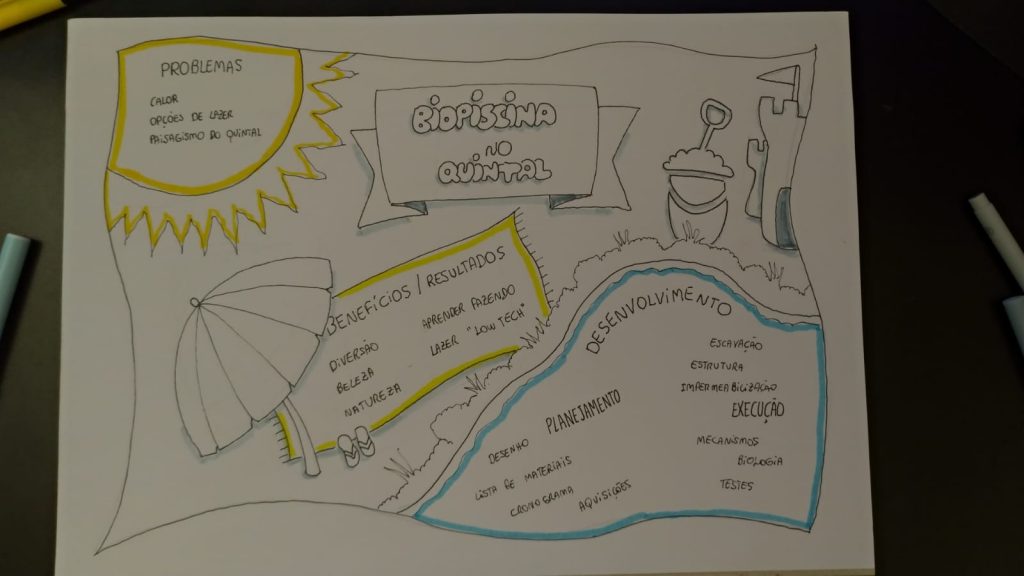 PROBLEMAS
CALOR
OPÇÕES DE LAZER
PAISAGISMO DO QUINTAL
BIOPISCINA
NO
QUINTAL
BENEFÍCIOS / RESULTADOS
DIVERSÃO
BELEZA
NATUREZA
APRENDER FAZENDO
LAZER "LOW TECH"
DESENVOLVIMENTO
PLANEJAMENTO
DESENHO
LISTA DE MATERIAIS
CRONOGRAMA
AQUISIÇÕES
ESCAVAÇÃO
ESTRUTURA
IMPERMEABILIZAÇÃO
EXECUÇÃO
MECANISMOS
BIOLOGIA
TESTES